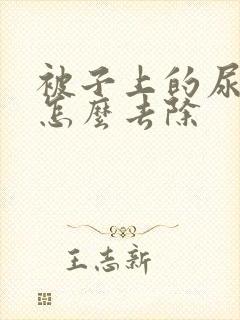 被子上的尿
怎麼去除
王志新